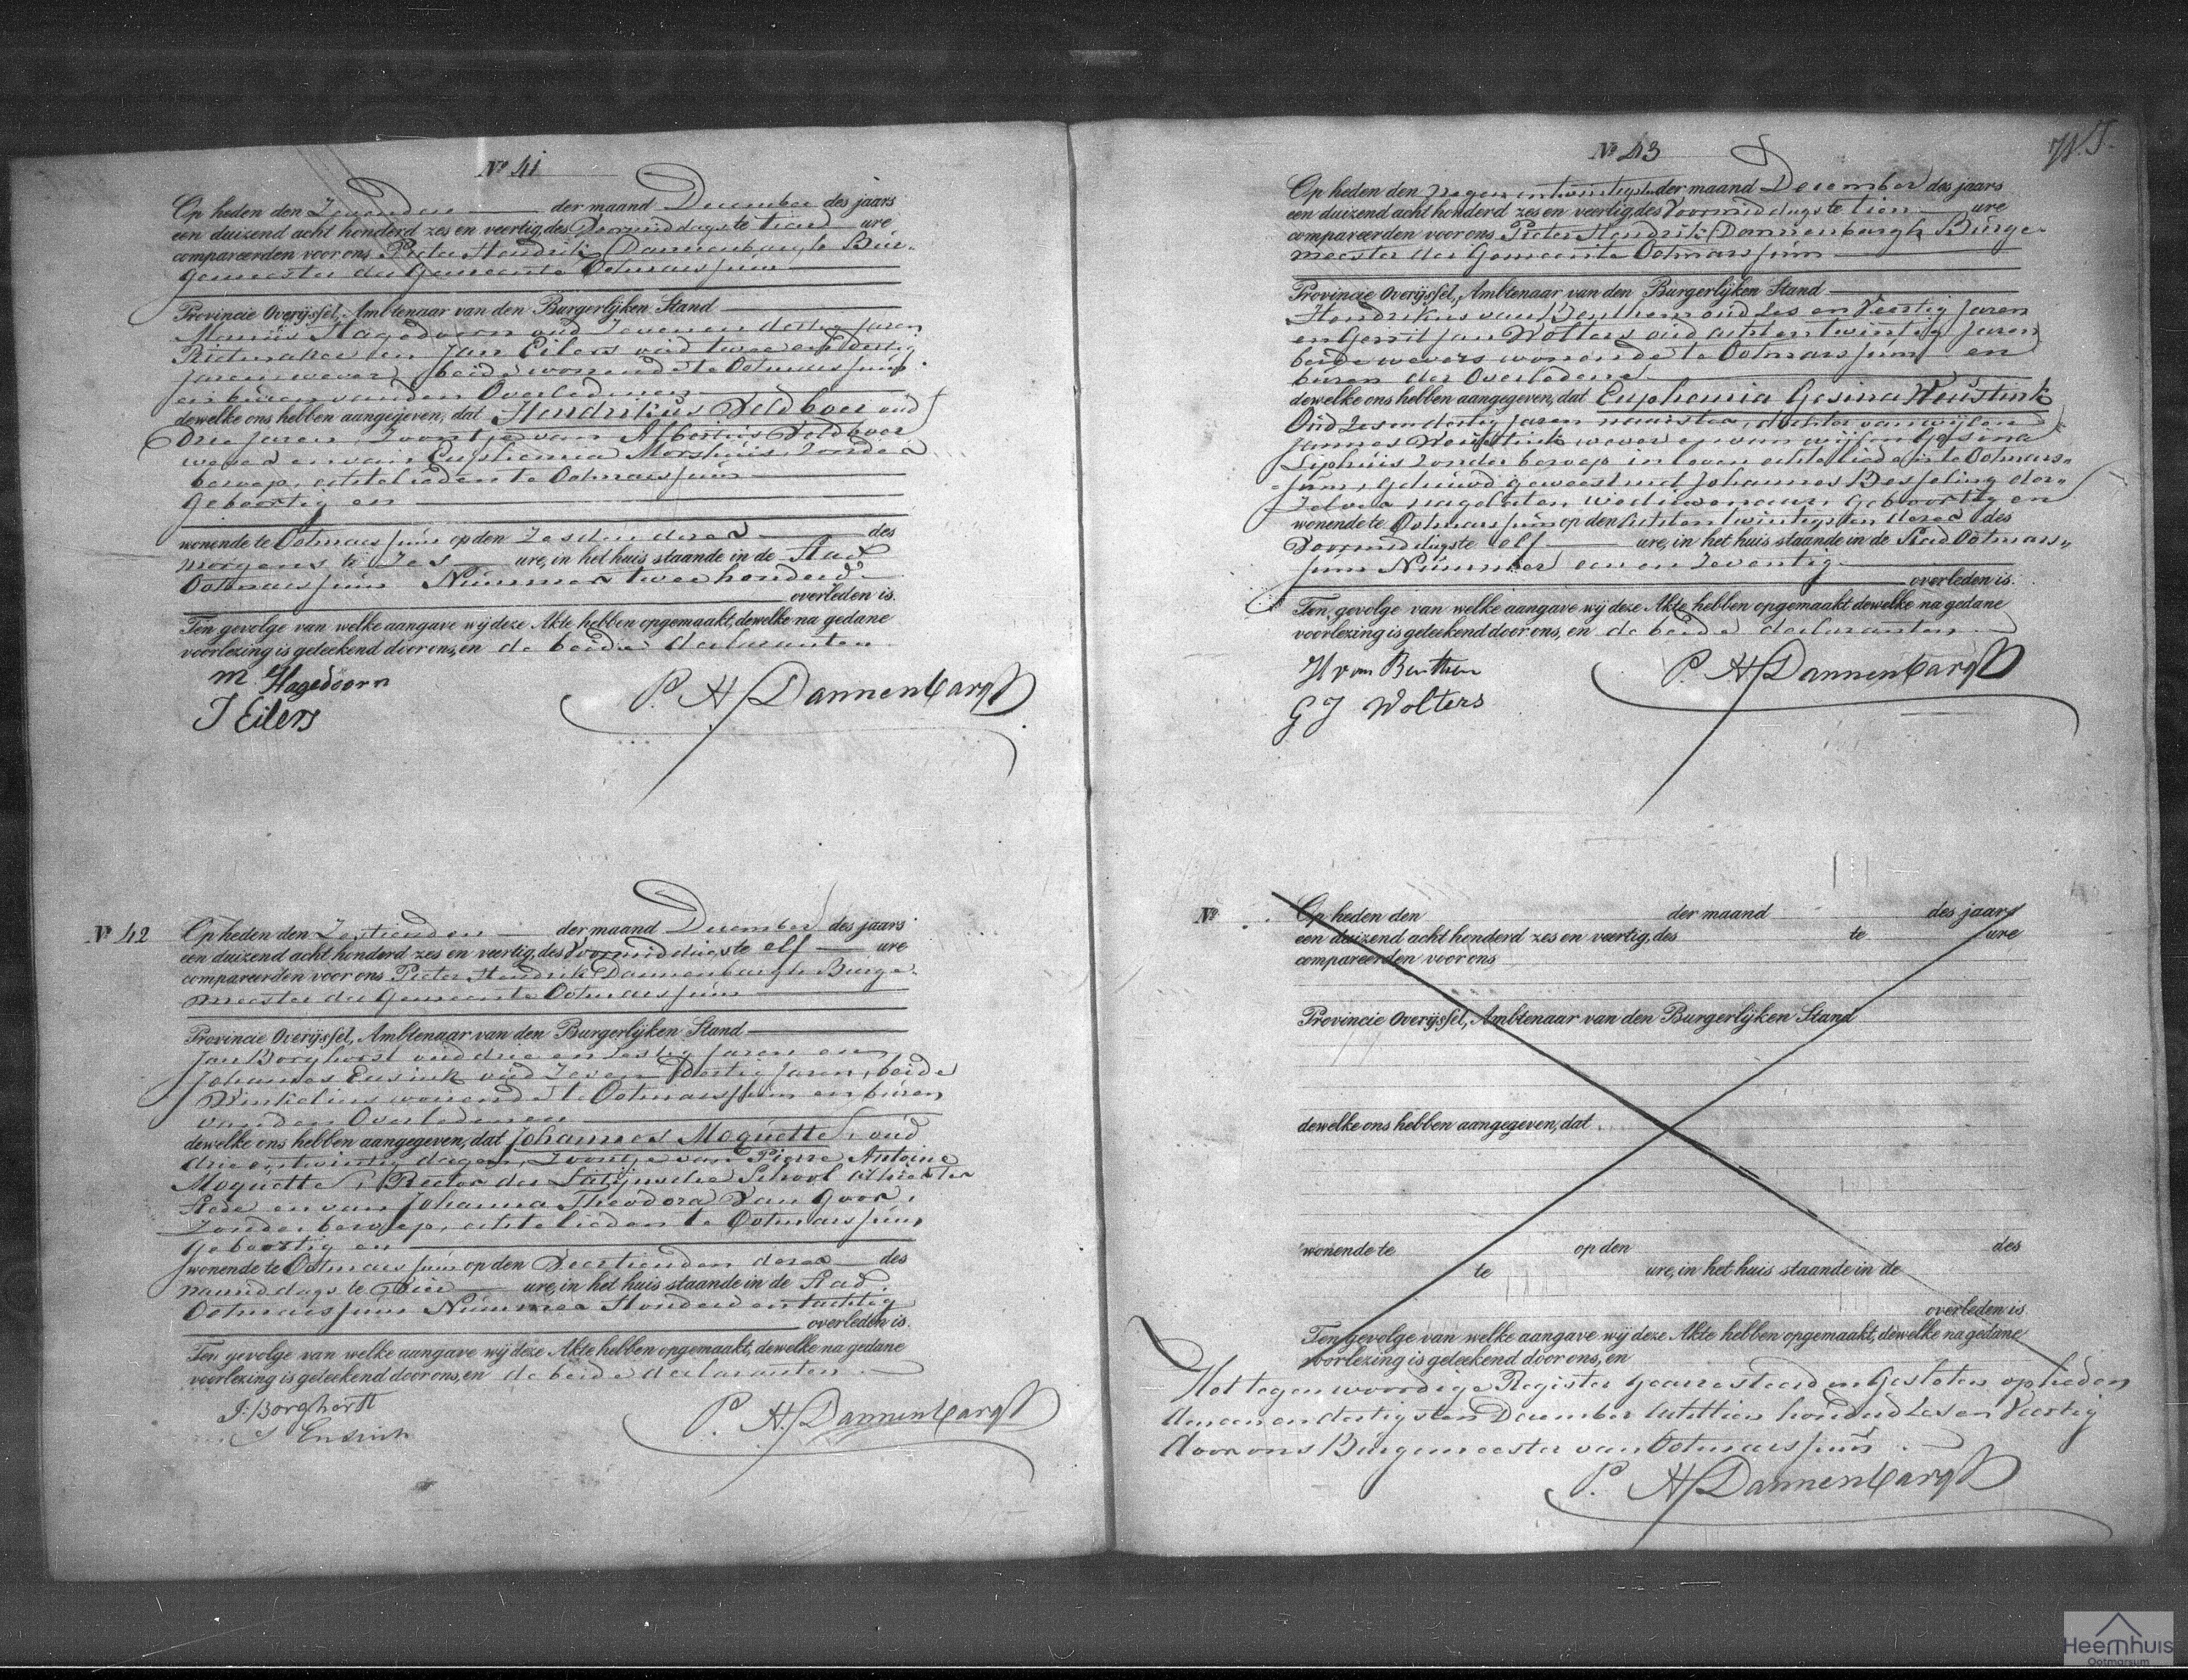 No 41
Op heden den Zevenden der maand December des jaars
een duizend acht honderd zes en veertig, des Voormiddags te tien ure
compareerden voor ons Pieter Hendrik Dannenbargh Bur-
gemeester der Gemeente Ootmarssum
Provincie Overijssel, Ambtenaar van den Burgerlijken Stand
Manus Hagedoorn oud Zeven en dertig Jaren
Rietmaker en Jan Eilers oud twee en dertig
Jaren wever, beide wonende te Ootmarssum
en buren van den Overledenen
dewelke ons hebben aangegeven, dat Hendrikus Veldboer oud
Drie Jaren, Zoontje van Albertus Veldboer
wever en van Euphemia Morshuis Zonder
beroep, echtelieden te Ootmarssum
Geboortig en
wonende te Ootmarssum op den Zesden dezer des
morgens te Zes ure, in het huis staande in de Stad
Ootmarssum Nummer twee honderd
overleden is.
Ten gevolge van welke aangave wij deze Akte hebben opgemaakt, dewelke na gedane
voorlezing is geteekend door ons, en de beide declaranten
M Hagedoorn
J Eilers
P. H. Dannenbargh
No 42
Op heden den Zestienden der maand December des jaars
een duizend acht honderd zes en veertig, des Voormiddags te elf ure
compareerden voor ons Pieter Hendrik Dannenbargh Burge-
meester der Gemeente Ootmarssum
Provincie Overijssel, Ambtenaar van den Burgerlijken Stand
Jan Borghorst oud drie en Zestig Jaren en
Johannes Ensink oud Zeven Dertig Jaren, beide
Winkeliers wonende te Ootmarssum en buren
van den Overledenen
dewelke ons hebben aangegeven, dat Johannes Moquette, oud
drie en twintig dagen, Zoontje van Pierre Antoine
Moquette, Rector der Latijnsche School alhier ter
Stede en van Johanna Theodora Van Goor,
Zonder beroep, echtelieden te Ootmarssum,
Geboortig en
wonende te Ootmarssum op den Veertienden dezer des
namiddags te Vier ure, in het huis staande in de Stad
Ootmarssum Nummer Honderd en tachtig
overleden is.
Ten gevolge van welke aangave wij deze Akte hebben opgemaakt, dewelke na gedane
voorlezing is geteekend door ons, en de beide declaranten
J: Borghorst
J Ensink
P. H. Dannenbargh
No 43
Op heden den negen en twintigsten der maand December des jaars
een duizend acht honderd zes en veertig, des Voormiddags te tien ure
compareerden voor ons Pieter Hendrik Dannenbargh Burge-
meester der Gemeente Ootmarssum
Provincie Overijssel, Ambtenaar van den Burgerlijken Stand
Hendrikus van Benthem oud Zes en Veertig Jaren
en Gerrit Jan Wolters oud acht en twintig Jaren
beide wevers wonende te Ootmarssum en
buren der Overledene
dewelke ons hebben aangegeven, dat Euphemia Gesina Weustink
Oud Zes en dertig Jaren naaister, dochter van wijlen
Jannes Weustink wever en van wijlen Gesina
Siphuis Zonder beroep in leven echtelieden te Ootmars„
sum, gehuwd geweest met Johannes Besseling der„
Zelver nagelaten weduwenaar, Geboortig en
wonende te Ootmarssum op den Achten twintigsten dezer des
Voormiddags te elf ure, in het huis staande in de Stad Ootmars„
sum Nummer een en Zeventig
overleden is.
Ten gevolge van welke aangave wij deze Akte hebben opgemaakt dewelke na gedane
voorlezing is geteekend door ons, en de beide declaranten
H van Benthem
G J Wolters
P. H. Dannenbargh
No
Op heden den der maand des jaars
een duizend acht honderd zes en veertig, des te ure
compareerden voor ons
Provincie Overijssel, Ambtenaar van den Burgerlijken Stand
dewelke ons hebben aangegeven, dat
wonende te op den des
te ure, in het huis staande in de
overleden is.
Ten gevolge van welke aangave wij deze Akte hebben opgemaakt, dewelke na gedane
voorlezing is geteekend door ons, en
Het tegenwoordige Register gearresteerd en Gesloten op heden
den een en dertigsten December Achttien honderd Zes en Veertig
door ons Burgemeester van Ootmarssum
P. H. Dannenbargh
Heemhuis
Ootmarsum